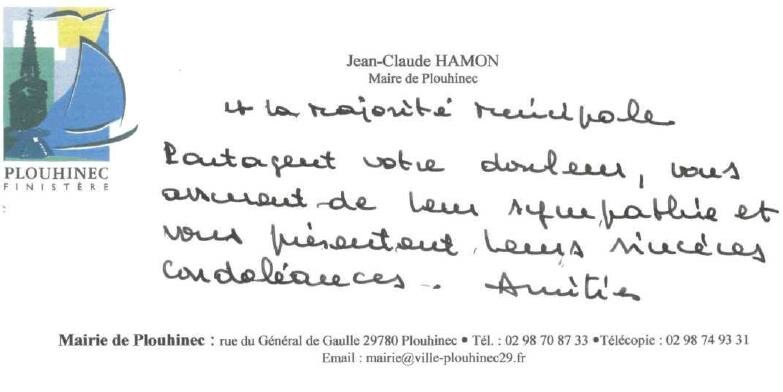 Jean-Claude HAMON
Maire de Plouhinec
et la majorité municipale
Partagent votre douleur, vous
assurent de leur sympathie et
vous présentent leurs sincères
condoléances. Amitiés
PLOUHINEC
FINISTÈRE
Mairie de Plouhinec : rue du Général de Gaulle 29780 Plouhinec • Tél. : 02 98 70 87 33 •Télécopie : 02 98 74 93 31
Email : mairie@ville-plouhinec29.fr